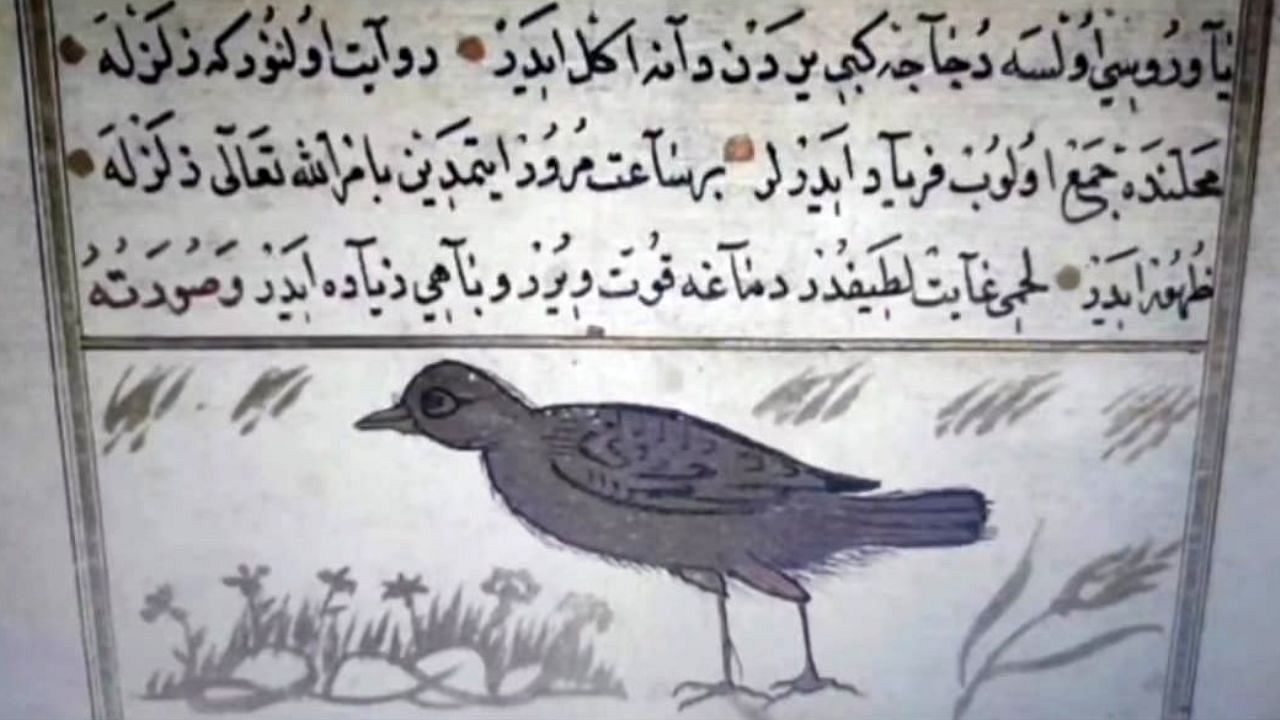 یاوروسی اولسه دجاجه کبی یردن دانه اکل ایدر • روایت اولنور که زلزله •
محلنده جمع اولوب فریاد ایدرلر • بر ساعت مرور ایتمدین بامر الله تعالی زلزله •
ظهور ایدر • لحمی غایت لطیفدر دماغه قوت ویرر و باهی زیاده ایدر وَصُورَتُهُ